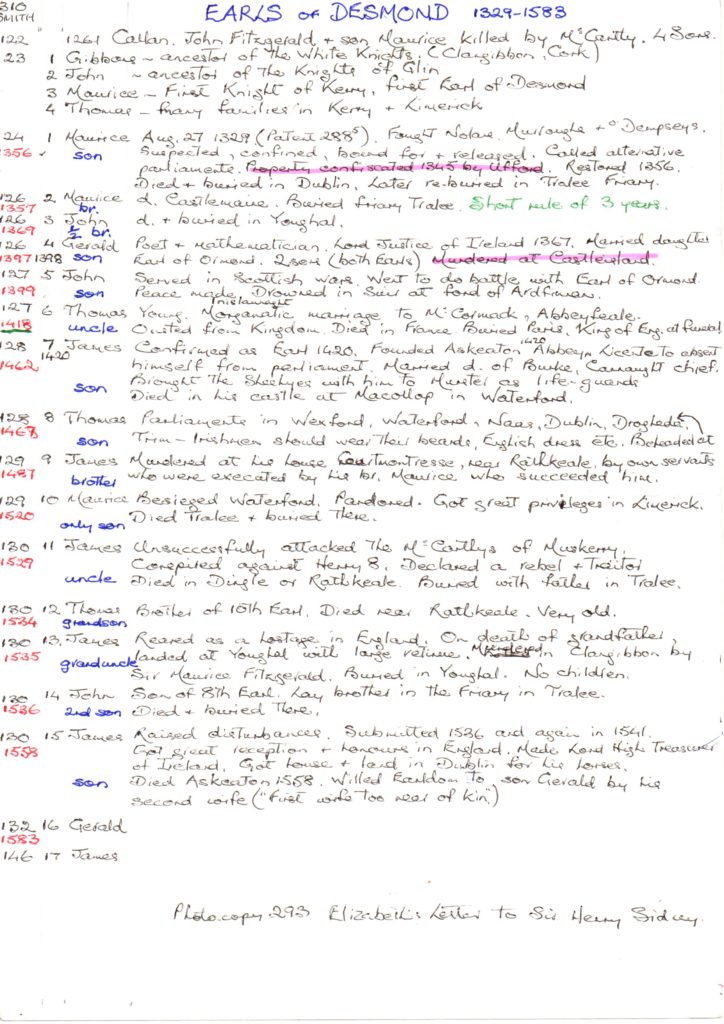 310 EARLS of DESMOND 1329-1583
SMITH
122 " 1261 Callan. John Fitzgerald + son Maurice killed by McCarthy. 4 Sons.
23 1 Gibbons ~ ancestor of the White Knights. (Clangibbon, Cork)
2 John ~ ancestor of the Knights of Glin
3 Maurice - First Knight of Kerry, first Earl of Desmond
4 Thomas - many families in Kerry + Limerick
24 1 Maurice Aug. 27 1329 (Patent 288s). Fought Nolans, Murroughs + O'Dempseys.
1356 son Suspected, confined, bound for + released. Called alternative
parliaments. Property confiscated 1345 by Ufford. Restored 1356.
Died + buried in Dublin. Later re-buried in Tralee Friary.
126 2 Maurice d. Castlemaine. Buried friary Tralee. Short rule of 3 years.
1357 br.
126 3 John d. + buried in Youghal.
1369 ½ br.
126 4 Gerald Poet + Mathematician. Lord Justice of Ireland 1367. Married daughter
1397 1398 son Earl of Ormond. 2 sons (both Earls) Murdered at Castleisland.
127 5 John Served in Scottish wars. Went to do battle with Earl of Ormond.
1399 son Peace made. Drowned in Suir at ford of Ardfinnan.
127 6 Thomas Young. Morganatic marriage to McCormack, Abbeyfeale.
1418 uncle Ousted from Kingdom. Died in France Buried Paris. King of Eng. at funeral
128 7 James Confirmed as Earl 1420. Founded Askeaton Abbey 1420. Licence to absent
1420
1462 himself from parliament. Married d. of Burke, Connaught chief.
son Brought the Sheehyes with him to Munster as life-guards
Died in his castle at Macollop in Waterford.
128 8 Thomas Parliaments in Wexford, Waterford, Naas, Dublin, Drogheda,
1467 son Trim - Irishmen should wear their beards, English dress etc. Beheaded at
129 9 James Murdered at his house Courtmontresse, near Rathkeale, by own servants
1487 brother who were executed by his br. Maurice who succeeded him.
129 10 Maurice Besieged Waterford. Pardoned. Got great privileges in Limerick.
1520 only son Died Tralee + buried there.
130 11 James Unsuccessfully attacked the McCarthys of Muskerry.
1529 Conspired against Henry 8. Declared a rebel + Traitor
uncle Died in Dingle or Rathkeale. Buried with father in Tralee.
130 12 Thomas Brother of 10th Earl. Died near Rathkeale. Very old.
1534 grandson
130 13. James Reared as a hostage in England. On death of grandfather,
1535 granduncle landed at Youghal with large retinue. Murdered in Clangibbon by
Sir Maurice Fitzgerald. Buried in Youghal. No children.
130 14 John Son of 8th Earl. Lay brother in the Friary in Tralee.
1536 2nd son Died + buried there.
130 15 James Raised disturbances. Submitted 1536 and again in 1541.
1558 Got great reception + honours in England. Made Lord High Treasurer
of Ireland. Got house + land in Dublin for his horses.
son Died Askeaton 1558. Willed Earldom to son Gerald by his
second wife ("First wife too near of kin.")
132 16 Gerald
1583
146 17 James
Photocopy 293 Elizabeth's Letter to Sir Henry Sidney.